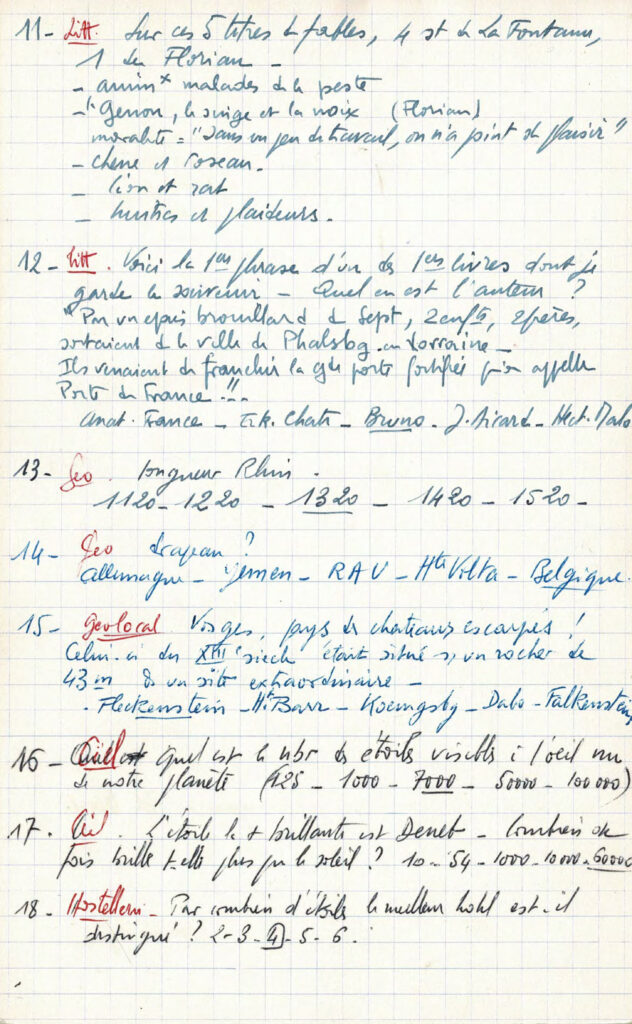 11- Litt. Sur ces 5 titres de fables, 4 st de La Fontaine,
1 de Florian -
- anim^x malades de la peste
- " Guenon, le singe et la noix (Florian)
moralité = "sans un peu de travail, on n'a point de plaisir"
- chêne et roseau.
- lion et rat
- huitres et plaideurs.
12- Litt. Voici la 1ère phrase d'un des 1ers livres dont je
garde le souvenir - Quel en est l'auteur ?
"Par un épais brouillard de Sept, 2 enfts, 2 frères,
sortaient de la ville de Phalsbg en Lorraine -
Ils venaient de franchir la gde porte fortifiée qu'on appelle
Porte de France"...
Anat. France - Erk. Chatr - Bruno - J. Aicard - Hect. Malo
13- Geo. longueur Rhin.
1120 - 1220 - 1320 - 1420 - 1520 -
14- Geo drapeau ?
allemagne - yémen - RAU - Hte Volta - Belgique.
15- Geo local. Vosges, pays de chateaux escarpés !
Celui-ci du XIII siècle était situé s/ un rocher de
43 m ds un site extraordinaire -
. Fleckenstein - Ht Barr - Koenigsbg - Dabo - Falkenstein
16- Ciel quel est le nbr des étoiles visibles à l'oeil nu
de notre planète (125 - 1000 - 7000 - 50000 - 100 000)
17. Ciel. L'étoile la + brillante est Deneb - Combien de
fois brille t-elle plus que le soleil ? 10 - 54 - 1000 - 10000 - 60000
18- Hostellerie - Par combien d'étoiles le meilleur hotel est-il
distingué ? 2-3-4-5-6.